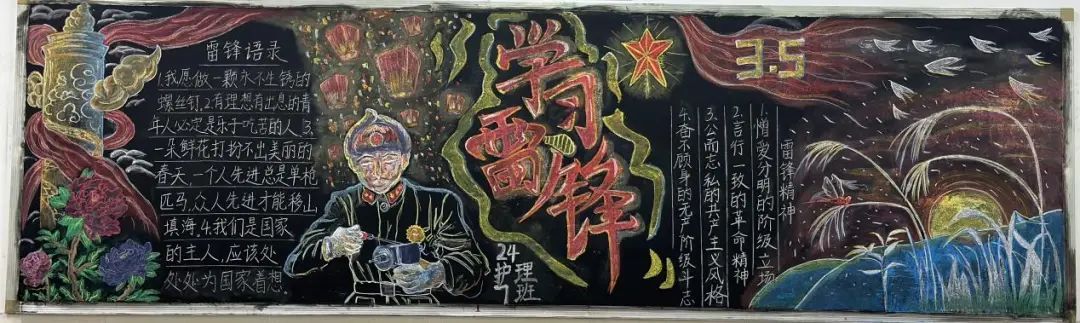 雷锋语录
1.我愿做一颗永不生锈的
螺丝钉,2.有理想有出息的青
年人必定是乐于吃苦的人 3.
一朵鲜花打扮不出美丽的
春天,一个人先进总是单枪
匹马,众人先进才能移山
填海,4.我们是国家
的主人,应该处
处处为国家着想
学习
雷锋
24
护理
7班
3.5
雷锋精神
1.憎爱分明的阶级立场
2.言行一致的革命精神
3.公而忘私的共产主义风格
4.奋不顾身的无产阶级斗志